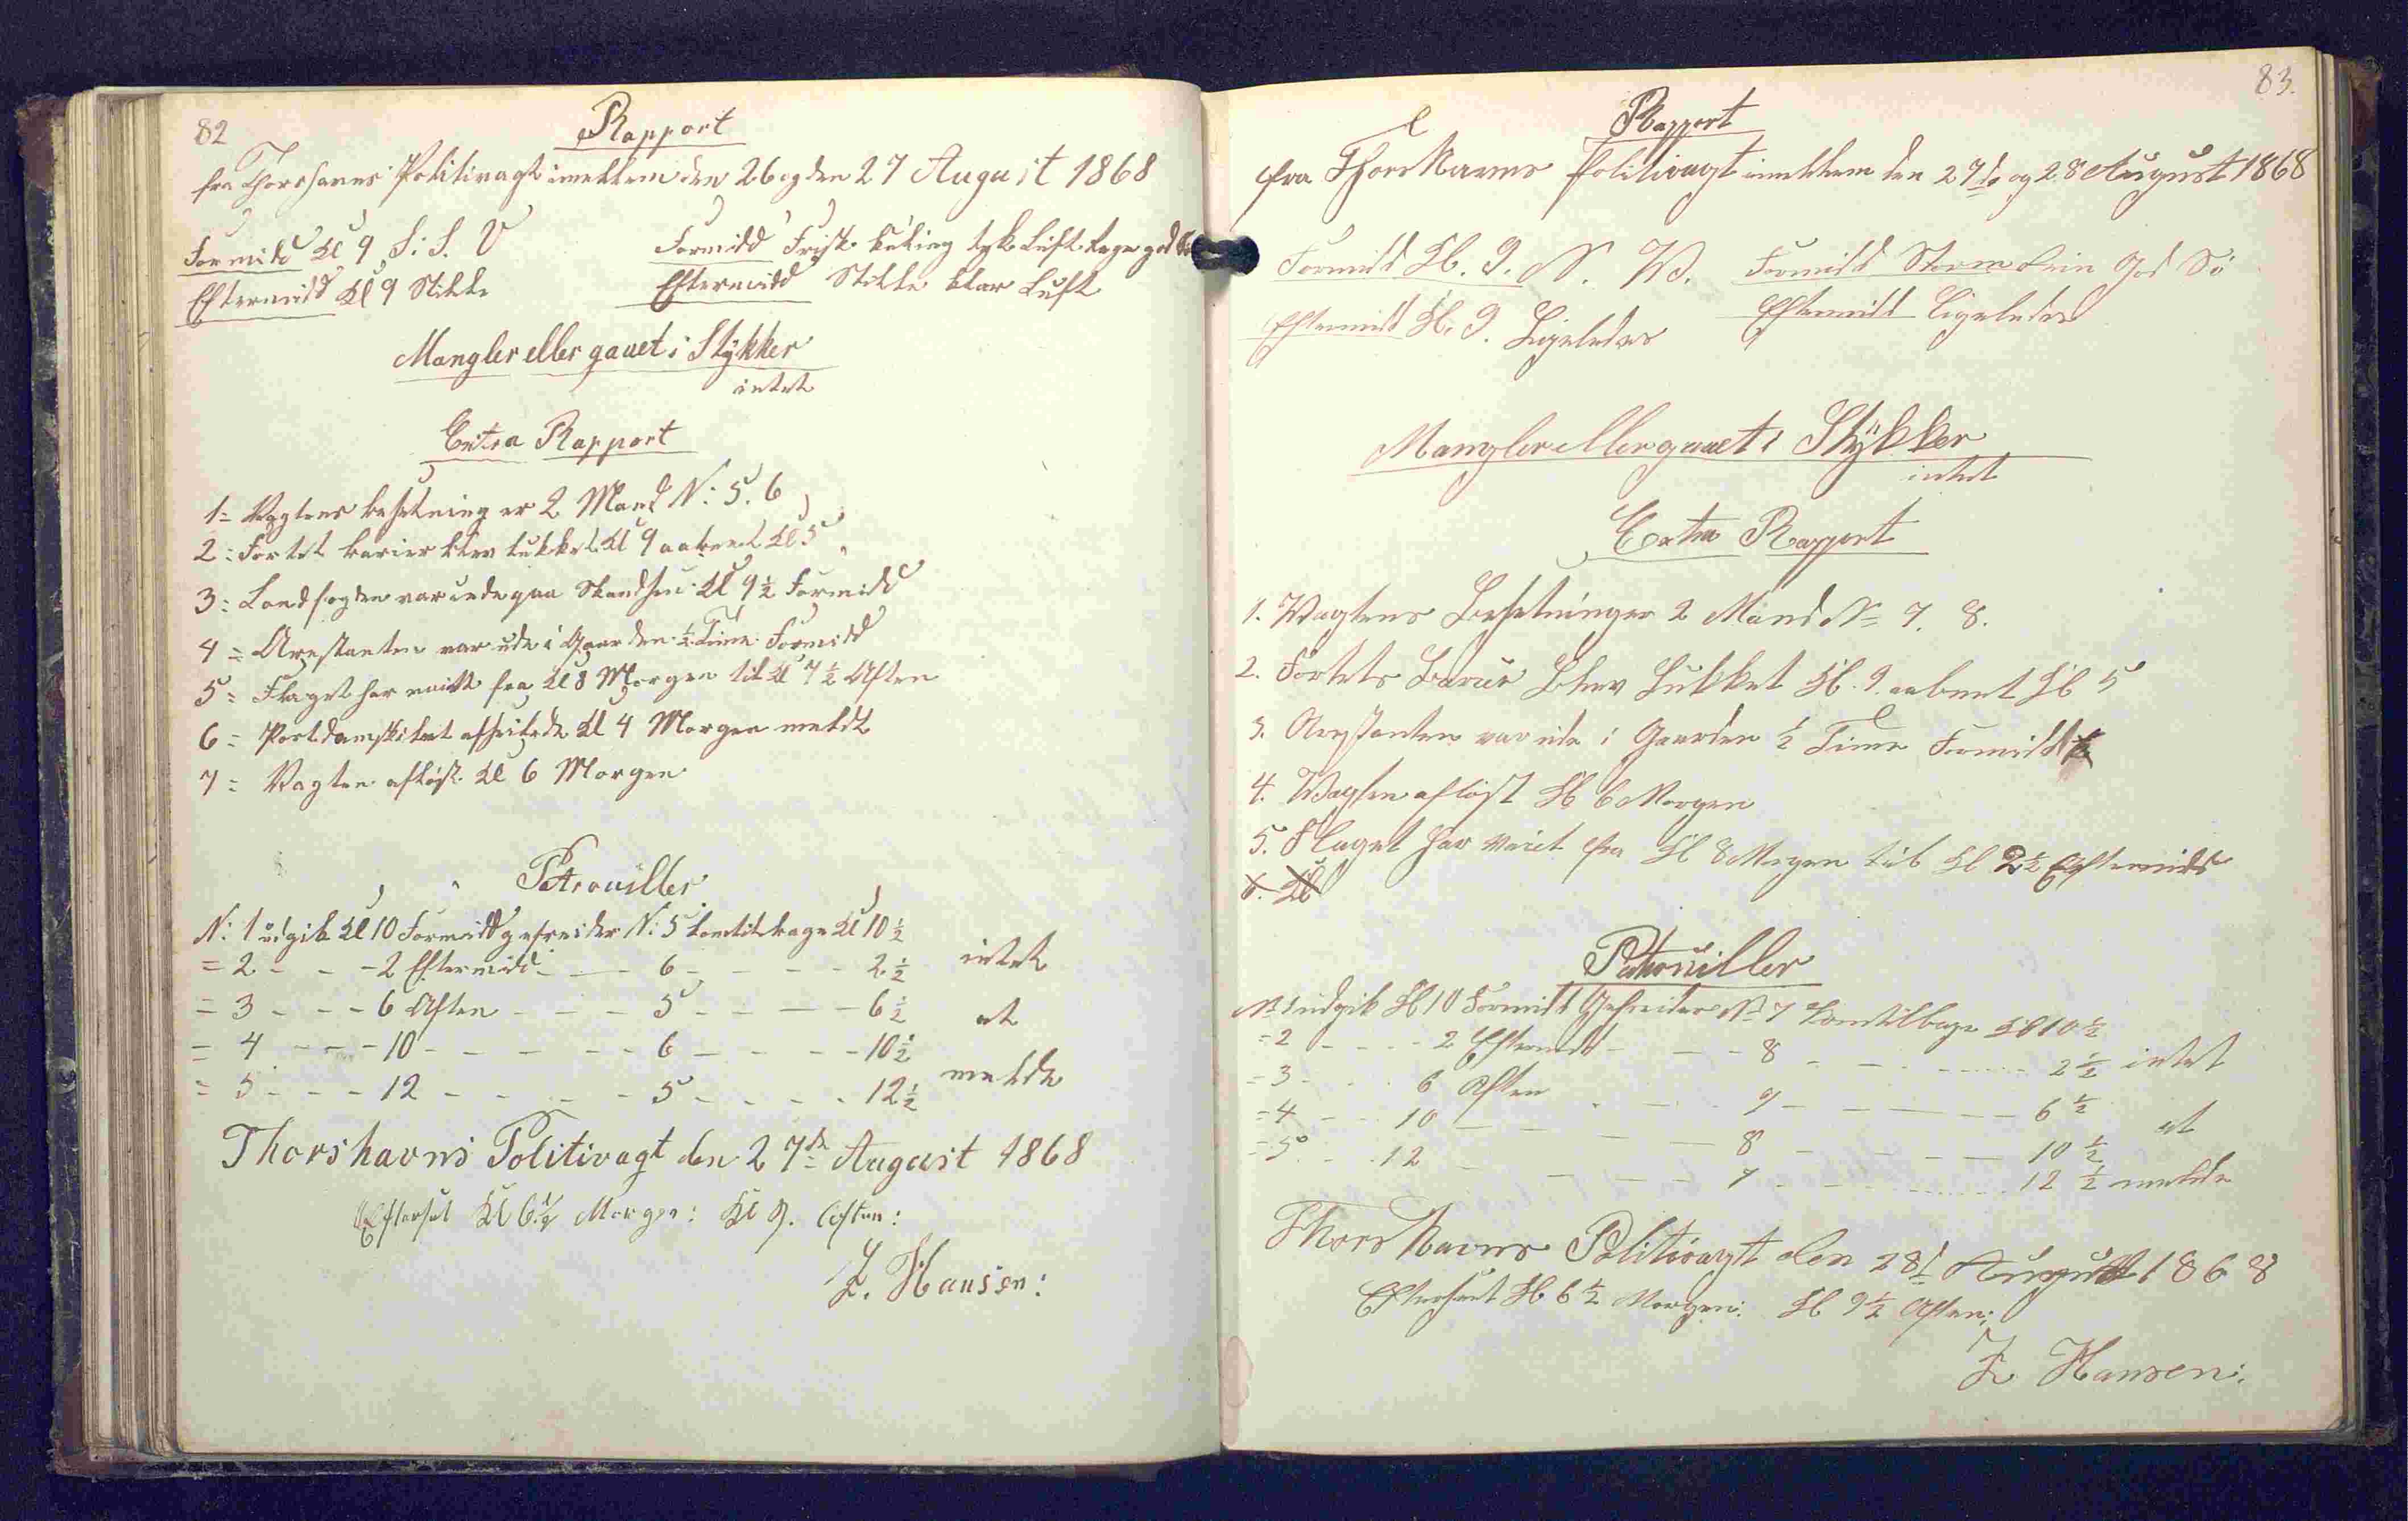 82
Rapport
fra Thorshavns Politivagt imellem den 26 og den 27 August 1868
Formidd Kl 9 S: S. V
Formidd Frisk Kuling tyk Luft Regn god
Eftermidd Kl 9 Stille
Eftermidd Stille klar Luft
Mangler eller gaaet i Stykker
intet
Extra Rapport
1= Vagtens besetning er 2 Mand N: 5. 6
2= Fortet barier blev lukket Kl 9 aabnet Kl 5
3= Landfogden var inde paa Skandsen Kl 9 ½ Formidd
4= Arrestanten var ude i Gaarden ½ Time Formidd
5= Flaget har vaiet fra Kl 8 Morgen til Kl 7 ½ Aften
6= Postdampskibet afseilede Kl 4 Morgen meldt
7= Vagten afløst Kl 6 Morgen
Patrouiller
N: 1 udgik Kl 10 Formidd gefreider N: 5 kom tilbage Kl 10 ½
= 2 - - - 2 Eftermidd - - - 6 - - - - 2 ½ intet
= 3 - - - 6 Aften - - - 5 - - - - 6 ½ at
= 4 - - - 10 - - - - - 6 - - - - 10 ½
= 5 - - - 12 - - - - - 5 - - - - 12 ½ melde
Thorshavns Politivagt den 27de August 1868
Efterset Kl 6 ½ Morgen: Kl 9. Aften:
Z. Hansen:
83.
Rapport
fra Thorshavns Politivagt imellem den 27de og 28 August 1868
Formidd Kl. 9. N. W.
Formidd Storm God Sö
Eftermidd Kl. 9. Ligeledes
Eftermidd Ligeledes
Mangler eller gaaet i Stykker
intet
Extra Rapport
1. Wagtens Besetninger 2 Mand No 7. 8.
2. Fortets Barier Blev Lukket Kl. 9. aabnet Kl 5
3. Arestanten var ude i Gaarden ½ Time Formidd
4. Wagten afløst Kl 6 Morgen
5. Flaget har vaiet fra Kl 8 Morgen til Kl 2 ½ Eftermidd
6. Kl
Patrouiller
No 1 udgik Kl 10 Formidd Gefreider No 7 Kom tilbage Kl 10 ½
= 2 - - - - 2 Eftermidd - - - 8 - - - - 2 ½ intet
= 3 - - - 6 Aften - - - 7 - - - - 6 ½
= 4 - - - 10 - - - - 8 - - - - 10 ½ at
= 5 - - - 12 - - - - 7 - - - - 12 ½ melde
Thorshavns Politivagt den 28 August 1868
Efterseet Kl 6 ½ Morgen: Kl 9 ½ Aften:
Z Hansen: